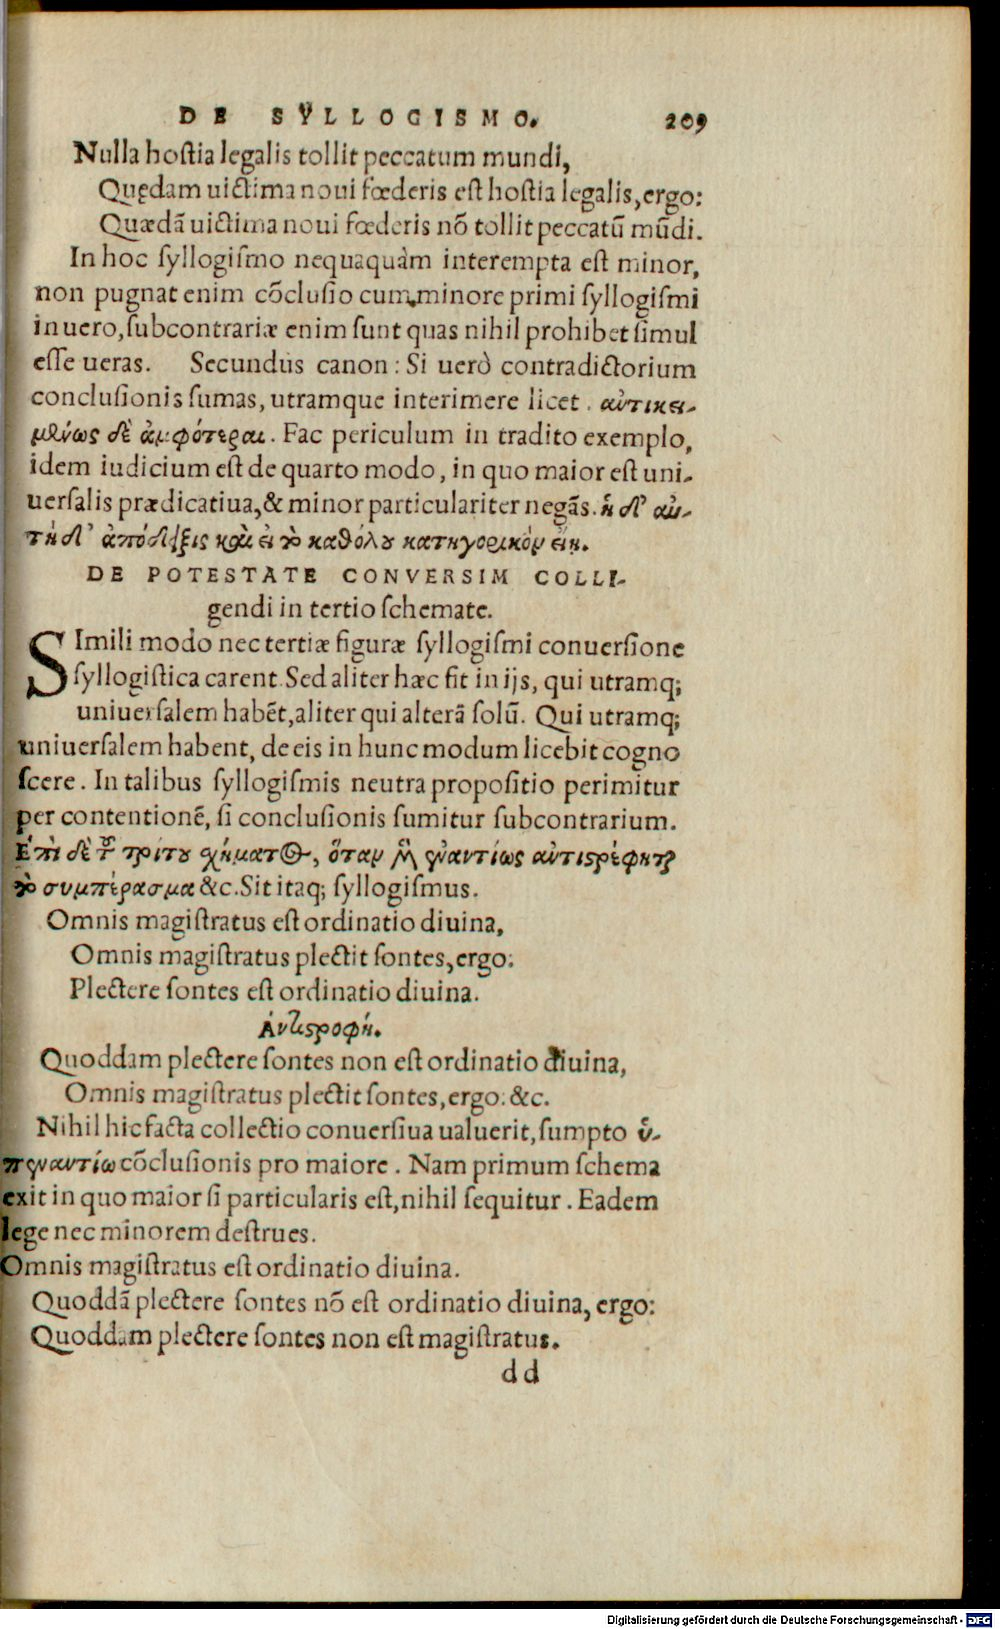 DE SYLLOGISMO. 209
Nulla hostia legalis tollit peccatum mundi,
Quędam uictima noui fœderis est hostia legalis, ergo:
Quædā uictima noui fœderis nō tollit peccatū mūdi.
In hoc syllogismo nequaquàm interempta est minor,
non pugnat enim cōclusio cum minore primi syllogismi
in uero, subcontrariæ enim sunt quas nihil prohibet simul
esse ueras. Secundus canon: Si uerò contradictorium
conclusionis sumas, utramque interimere licet. αὐτικει-
μένως δὲ ἀμφότεραι. Fac periculum in tradito exemplo,
idem iudicium est de quarto modo, in quo maior est uni-
uersalis prædicatiua, & minor particulariter negās. ἡ δ' αὐ-
τὴ δ' ἀπόδειξις καὶ εἰ τὸ καθόλου κατηγορικὸν εἴη.
DE POTESTATE CONVERSIM COLLI-
gendi in tertio schemate.
SImili modo nec tertiæ figuræ syllogismi conuersione
syllogistica carent. Sed aliter hæc fit in ijs, qui utramq;
uniuersalem habēt, aliter qui alterā solū. Qui utramq;
uniuersalem habent, de eis in hunc modum licebit cogno
scere. In talibus syllogismis neutra propositio perimitur
per contentionē, si conclusionis sumitur subcontrarium.
Επὶ δὲ τοῦ τρίτου σχήματος, ὅταν μὲν ἐναντίως αὐτιστρέφηται
τὸ συμπέρασμα &c. Sit itaq; syllogismus.
Omnis magistratus est ordinatio diuina,
Omnis magistratus plectit sontes, ergo:
Plectere sontes est ordinatio diuina.
Ἀντιστροφή.
Quoddam plectere sontes non est ordinatio diuina,
Omnis magistratus plectit sontes, ergo: &c.
Nihil hic facta collectio conuersiua ualuerit, sumpto ὑ-
πεναντίῳ cōclusionis pro maiore. Nam primum schema
exit in quo maior si particularis est, nihil sequitur. Eadem
lege nec minorem destrues.
Omnis magistratus est ordinatio diuina.
Quoddā plectere sontes nō est ordinatio diuina, ergo:
Quoddam plectere sontes non est magistratus.
dd
Digitalisierung gefördert durch die Deutsche Forschungsgemeinschaft - DFG